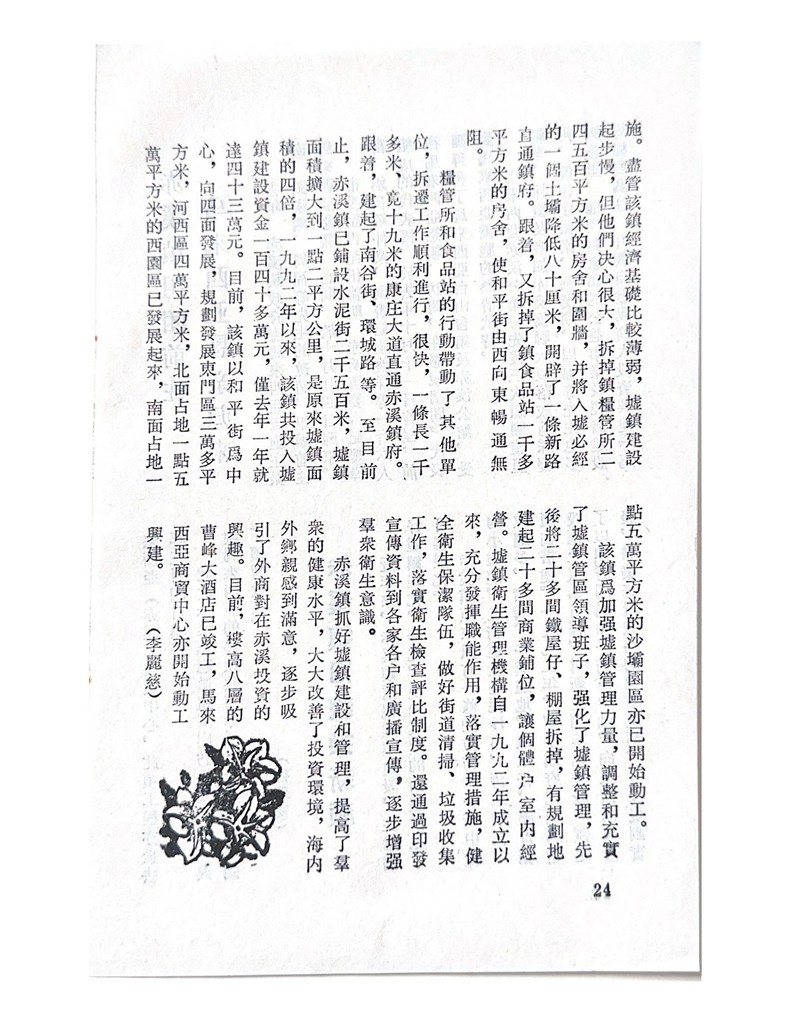 施。盡管該鎮經濟基礎比較薄弱，墟鎮建設
起步慢，但他們决心很大，拆掉鎮糧管所二
四五百平方米的房舍和圍牆，并將入墟必經
的一個土壩降低八十厘米，開辟了一條新路
直通鎮府。跟着，又拆掉了鎮食品站一千多
平方米的房舍，使和平街由西向東暢通無
阻。
糧管所和食品站的行動帶動了其他單
位，拆遷工作順利進行，很快，一條長一千
多米、竟十九米的康庄大道直通赤溪鎮府。
跟着，建起了南谷街、環城路等。至目前
止，赤溪鎮已鋪設水泥街二千五百米，墟鎮
面積擴大到一點二平方公里，是原來墟鎮面
積的四倍，一九九二年以來，該鎮共投入墟
鎮建設資金一百四十多萬元，僅去年一年就
達四十三萬元。目前，該鎮以和平街爲中
心，向四面發展，規劃發展東門區三萬多平
方米，河西區四萬平方米，北面占地一點五
萬平方米的西園區已發展起來，南面占地一
點五萬平方米的沙壩園區亦已開始動工。
該鎮爲加强墟鎮管理力量，調整和充實
了墟鎮管區領導班子，强化了墟鎮管理，先
後將二十多間鐵屋仔、棚屋拆掉，有規劃地
建起二十多間商業鋪位，讓個體户室内經
營。墟鎮衛生管理機構自一九九二年成立以
來，充分發揮職能作用，落實管理措施，健
全衛生保潔隊伍，做好街道清掃、垃圾收集
工作，落實衛生檢查評比制度。還通過印發
宣傳資料到各家各户和廣播宣傳，逐步增强
羣衆衛生意識。
赤溪鎮抓好墟鎮建設和管理，提高了羣
衆的健康水平，大大改善了投資環境，海内
外鄉親感到滿意，逐步吸
引了外商對在赤溪投資的
興趣。目前，樓高八層的
曹峰大酒店已竣工，馬來
西亞商貿中心亦開始動工
興建。（李麗慈）
24